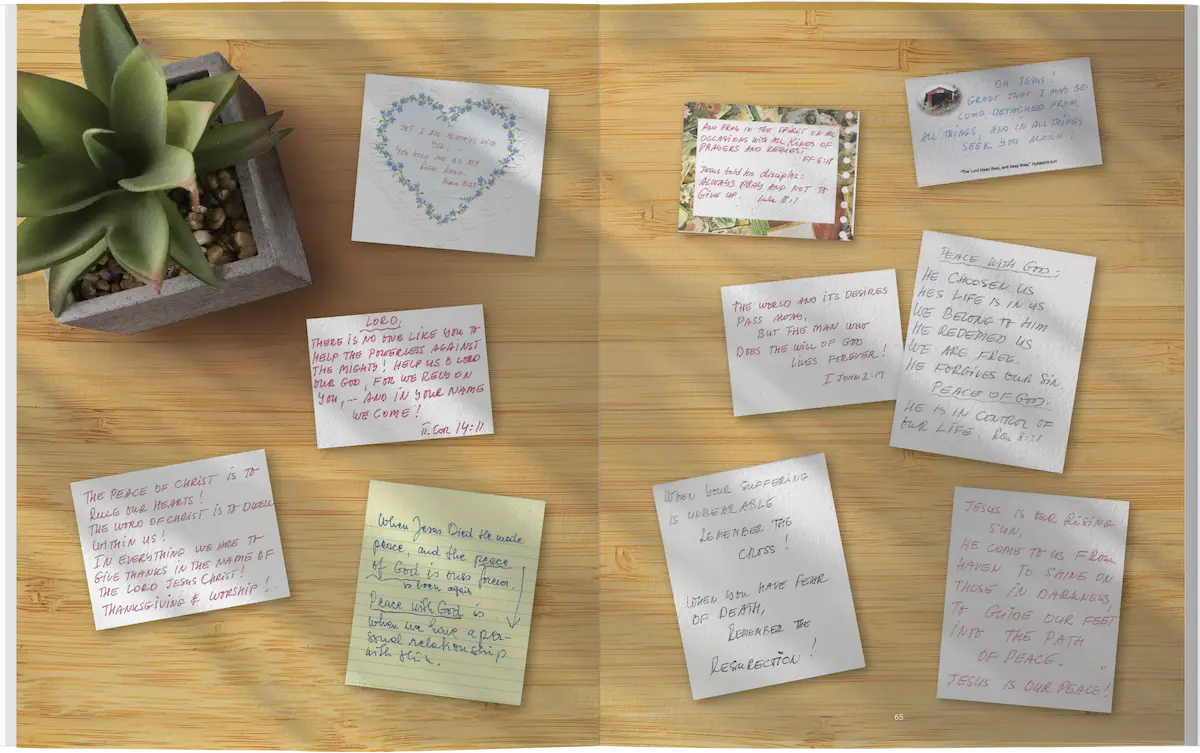 YET I AM ALWAYS WITH
YOU!
YOU HOLD ME BY MY
RIGHT HAND.
LORD,
THERE IS NO ONE LIKE YOU TO
HELP THE POWERLESS AGAINST
THE MIGHTY! HELP US O LORD
OUR GOD, FOR WE RELY ON
YOU,... AND IN YOUR NAME
WE COME!
II. COR 14:11
THE PEACE OF CHRIST IS TO
RULE OUR HEARTS!
THE WORD OF CHRIST IS TO DWELL
WITHIN US!
IN EVERYTHING WE ARE TO
GIVE THANKS IN THE NAME OF
THE LORD JESUS CHRIST!
THANKSGIVING & WORSHIP!
When Jesus Died He made
peace, and the peace
of God is ours forever.
to born again
Peace with God is
when we have a per-
sonal relationship
with Him.
AND PRAY IN THE SPIRIT ON ALL
OCCASIONS WITH ALL KINDS OF
PRAYERS AND REQUEST
EF 6:18
Jesus told his disciples:
ALWAYS PRAY AND NOT TO
GIVE UP. Luke 18:1
OH JESUS!
GRANT THAT I MAY BE-
COME DETACHED FROM
ALL THINGS, AND IN ALL THINGS
SEEK YOU ALONE!
"The Lord bless thee, and keep thee." NUMBERS 6:24
THE WORLD AND ITS DESIRES
PASS AWAY,
BUT THE MAN WHO
DOES THE WILL OF GOD
LIVES FOREVER!
I JOHN 2:17
PEACE WITH GOD:
HE CHOOSEN US
HES LIFE IS IN US
WE BELONG TO HIM
HE REDEMED US
WE ARE FREE.
HE FORGIVES OUR SIN.
PEACE OF GOD:
HE IS IN CONTROL OF
OUR LIFE.
WHEN YOUR SUFFERING
IS UNBEARABLE
REMEMBER THE
CROSS!
WHEN YOU HAVE FEAR
OF DEATH,
REMEMBER THE
RESURECTION!
JESUS IS OUR RISING
SUN,
HE COME TO US FROM
HAVEN TO SHINE ON
THOSE IN DARKNESS,
TO GUIDE OUR FEET
INTO THE PATH
OF PEACE.
JESUS IS OUR PEACE!
65